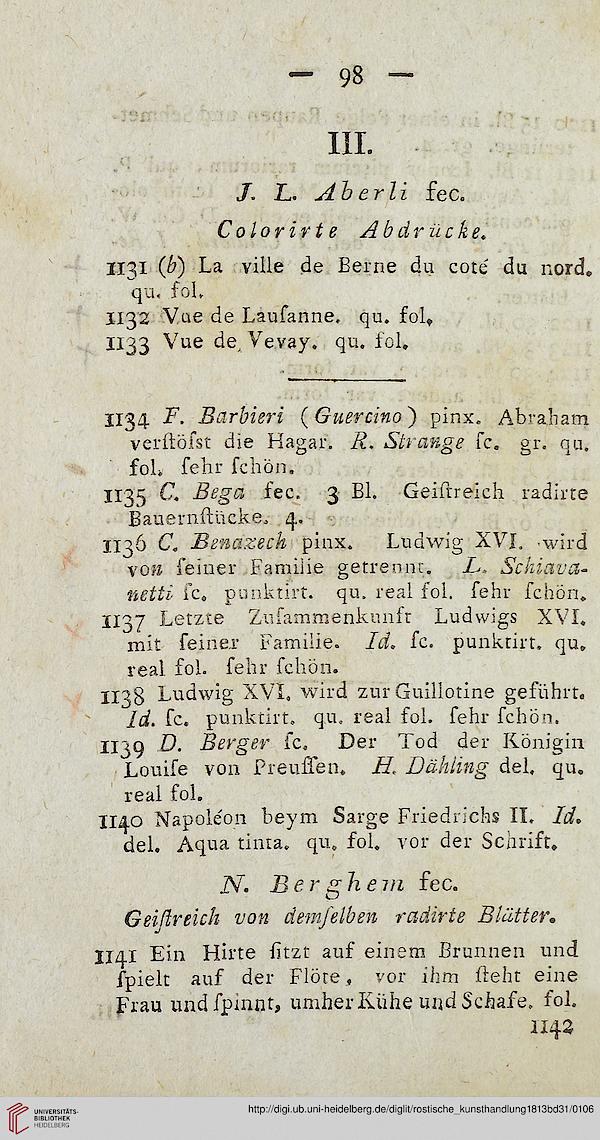 — 98 —
III.
J. L. Aberli fec.
Colorirte Abdrücke.
1131 (b) La ville de Berne du coté du nord.
qu. fol.
1132 Vue de Lauſanne. qu. fol.
1133 Vue de Vevay. qu. fol.
1134 F. Barbieri (Guercino) pinx. Abraham
verſtöſst die Hagar. R. Strange ſc. gr. qu.
fol. ſehr ſchön.
1135 C. Bega fec. 3 Bl. Geiſtreich radirte
Bauernſtücke. 4.
1136 C. Benazech pinx. Ludwig XVI. wird
von ſeiner Familie getrennt. L. Schiava-
netti ſc. punktirt. qu. real fol. ſehr ſchön.
1137 Letzte Zuſammenkunft Ludwigs XVI.
mit ſeiner Familie. Id. ſc. punktirt. qu.
real fol. ſehr ſchön.
1138 Ludwig XVI. wird zur Guillotine geführt.
Id. ſc. punktirt. qu. real fol. ſehr ſchön.
1139 D. Berger ſc. Der Tod der Königin
Louiſe von Preuſſen. H. Dähling del. qu.
real fol.
1140 Napoléon beym Sarge Friedrichs II. Id.
del. Aqua tinta. qu. fol. vor der Schrift.
N. Berghem fec.
Geiſtreich von demſelben radirte Blätter.
1141 Ein Hirte ſitzt auf einem Brunnen und
ſpielt auf der Flöte, vor ihm ſteht eine
Frau und ſpinnt, umher Kühe und Schafe. fol.
1142
UNIVERSITÄTS-
BIBLIOTHEK
HEIDELBERG
http://digi.ub.uni-heidelberg.de/diglit/rostische_kunsthandlung1813bd31/0106